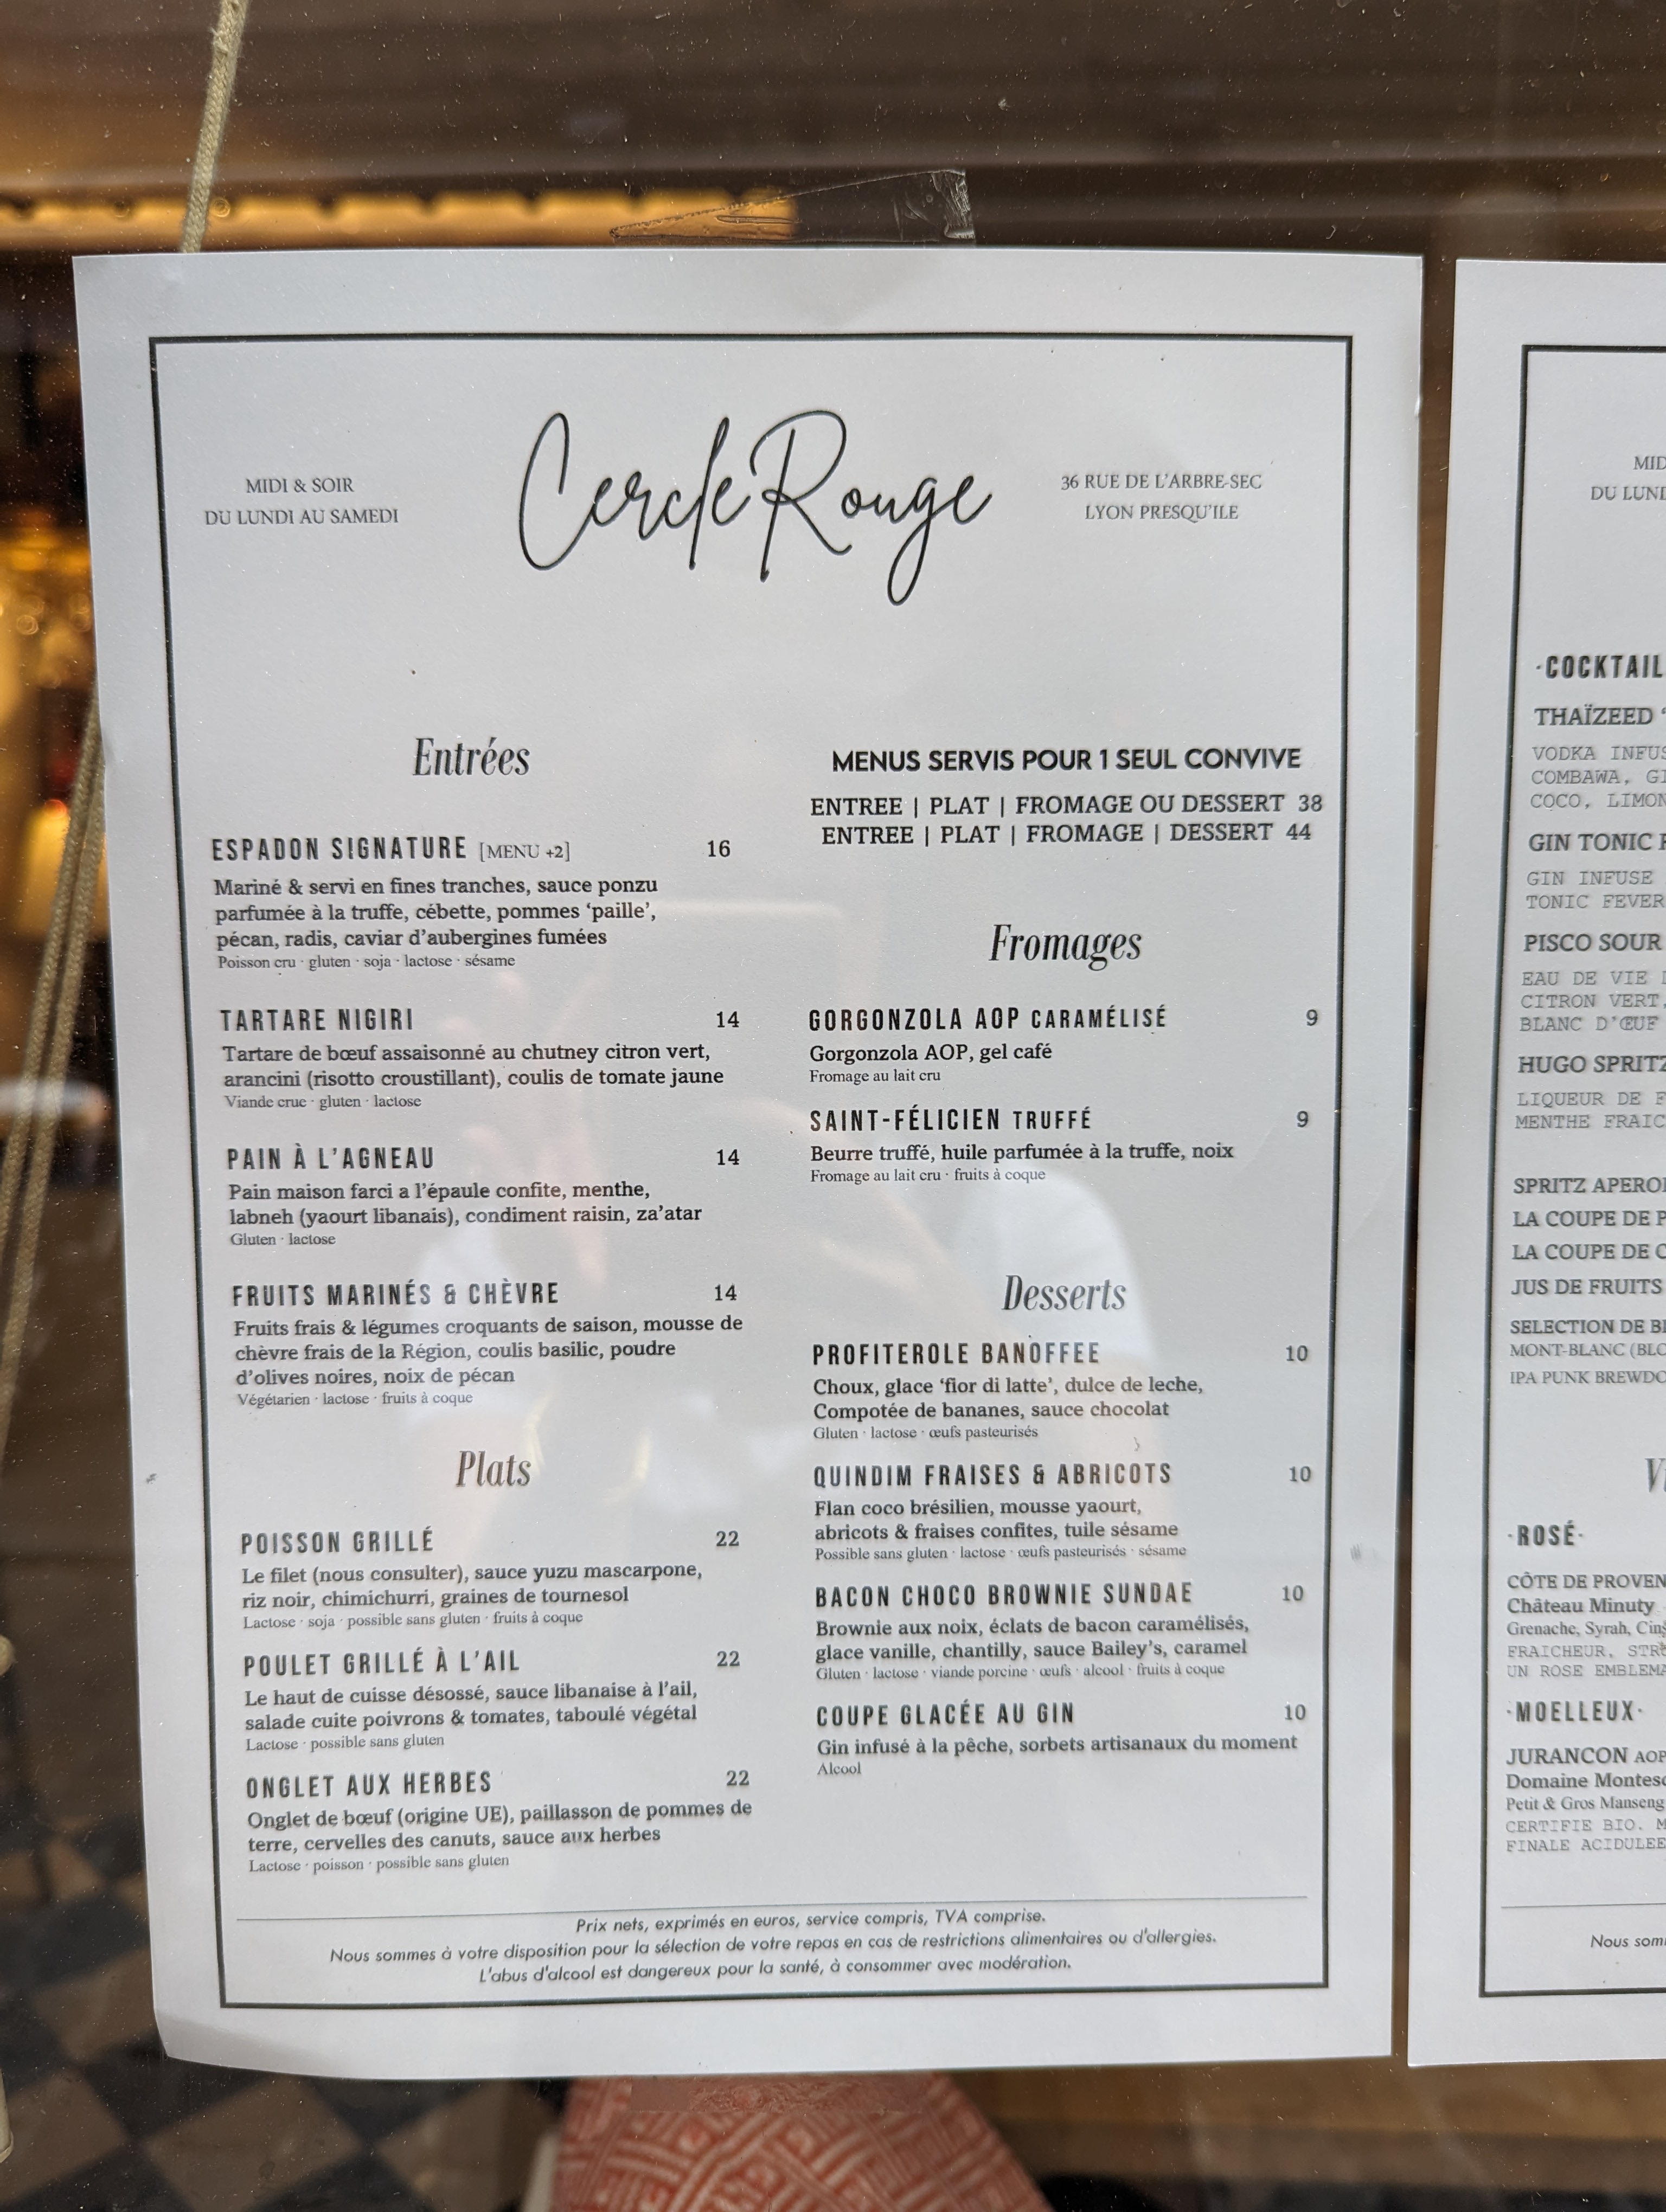 MIDI & SOIR
DU LUNDI AU SAMEDI
Cercle Rouge
36 RUE DE L'ARBRE-SEC
LYON PRESQU'ILE
Entrées
ESPADON SIGNATURE [MENU +2] 16
Mariné & servi en fines tranches, sauce ponzu
parfumée à la truffe, cébette, pommes ‘paille’,
pécan, radis, caviar d’aubergines fumées
Poisson cru · gluten · soja · lactose · sésame
TARTARE NIGIRI 14
Tartare de bœuf assaisonné au chutney citron vert,
arancini (risotto croustillant), coulis de tomate jaune
Viande crue · gluten · lactose
PAIN À L’AGNEAU 14
Pain maison farci a l’épaule confite, menthe,
labneh (yaourt libanais), condiment raisin, za’atar
Gluten · lactose
FRUITS MARINÉS & CHÈVRE 14
Fruits frais & légumes croquants de saison, mousse de
chèvre frais de la Région, coulis basilic, poudre
d’olives noires, noix de pécan
Végétarien · lactose · fruits à coque
Plats
POISSON GRILLÉ 22
Le filet (nous consulter), sauce yuzu mascarpone,
riz noir, chimichurri, graines de tournesol
Lactose · soja · possible sans gluten · fruits à coque
POULET GRILLÉ À L’AIL 22
Le haut de cuisse désossé, sauce libanaise à l’ail,
salade cuite poivrons & tomates, taboulé végétal
Lactose · possible sans gluten
ONGLET AUX HERBES 22
Onglet de bœuf (origine UE), paillasson de pommes de
terre, cervelles des canuts, sauce aux herbes
Lactose · poisson · possible sans gluten
MENUS SERVIS POUR 1 SEUL CONVIVE
ENTREE | PLAT | FROMAGE OU DESSERT 38
ENTREE | PLAT | FROMAGE | DESSERT 44
Fromages
GORGONZOLA AOP CARAMÉLISÉ 9
Gorgonzola AOP, gel café
Fromage au lait cru
SAINT-FÉLICIEN TRUFFÉ 9
Beurre truffé, huile parfumée à la truffe, noix
Fromage au lait cru · fruits à coque
Desserts
PROFITEROLE BANOFFEE 10
Choux, glace ‘fior di latte’, dulce de leche,
Compotée de bananes, sauce chocolat
Gluten · lactose · œufs pasteurisés
QUINDIM FRAISES & ABRICOTS 10
Flan coco brésilien, mousse yaourt,
abricots & fraises confites, tuile sésame
Possible sans gluten · lactose · œufs pasteurisés · sésame
BACON CHOCO BROWNIE SUNDAE 10
Brownie aux noix, éclats de bacon caramélisés,
glace vanille, chantilly, sauce Bailey’s, caramel
Gluten · lactose · viande porcine · œufs · alcool · fruits à coque
COUPE GLACÉE AU GIN 10
Gin infusé à la pêche, sorbets artisanaux du moment
Alcool
Prix nets, exprimés en euros, service compris, TVA comprise.
Nous sommes à votre disposition pour la sélection de votre repas en cas de restrictions alimentaires ou d'allergies.
L'abus d'alcool est dangereux pour la santé, à consommer avec modération.
MID
DU LUND
·COCKTAIL
THAÏZEED
VODKA INFUS
COMBAWA, GI
COCO, LIMON
GIN TONIC
GIN INFUSE
TONIC FEVER
PISCO SOUR
EAU DE VIE
CITRON VERT,
BLANC D’ŒUF
HUGO SPRITZ
LIQUEUR DE F
MENTHE FRAIC
SPRITZ APEROL
LA COUPE DE P
LA COUPE DE C
JUS DE FRUITS
SELECTION DE BI
MONT-BLANC (BLO
IPA PUNK BREWDO
·ROSÉ·
CÔTE DE PROVEN
Château Minuty
Grenache, Syrah, Cin
FRAICHEUR, STR
UN ROSE EMBLEMA
·MOELLEUX·
JURANCON AOP
Domaine Montes
Petit & Gros Manseng
CERTIFIE BIO. M
FINALE ACIDULEE
Nous som